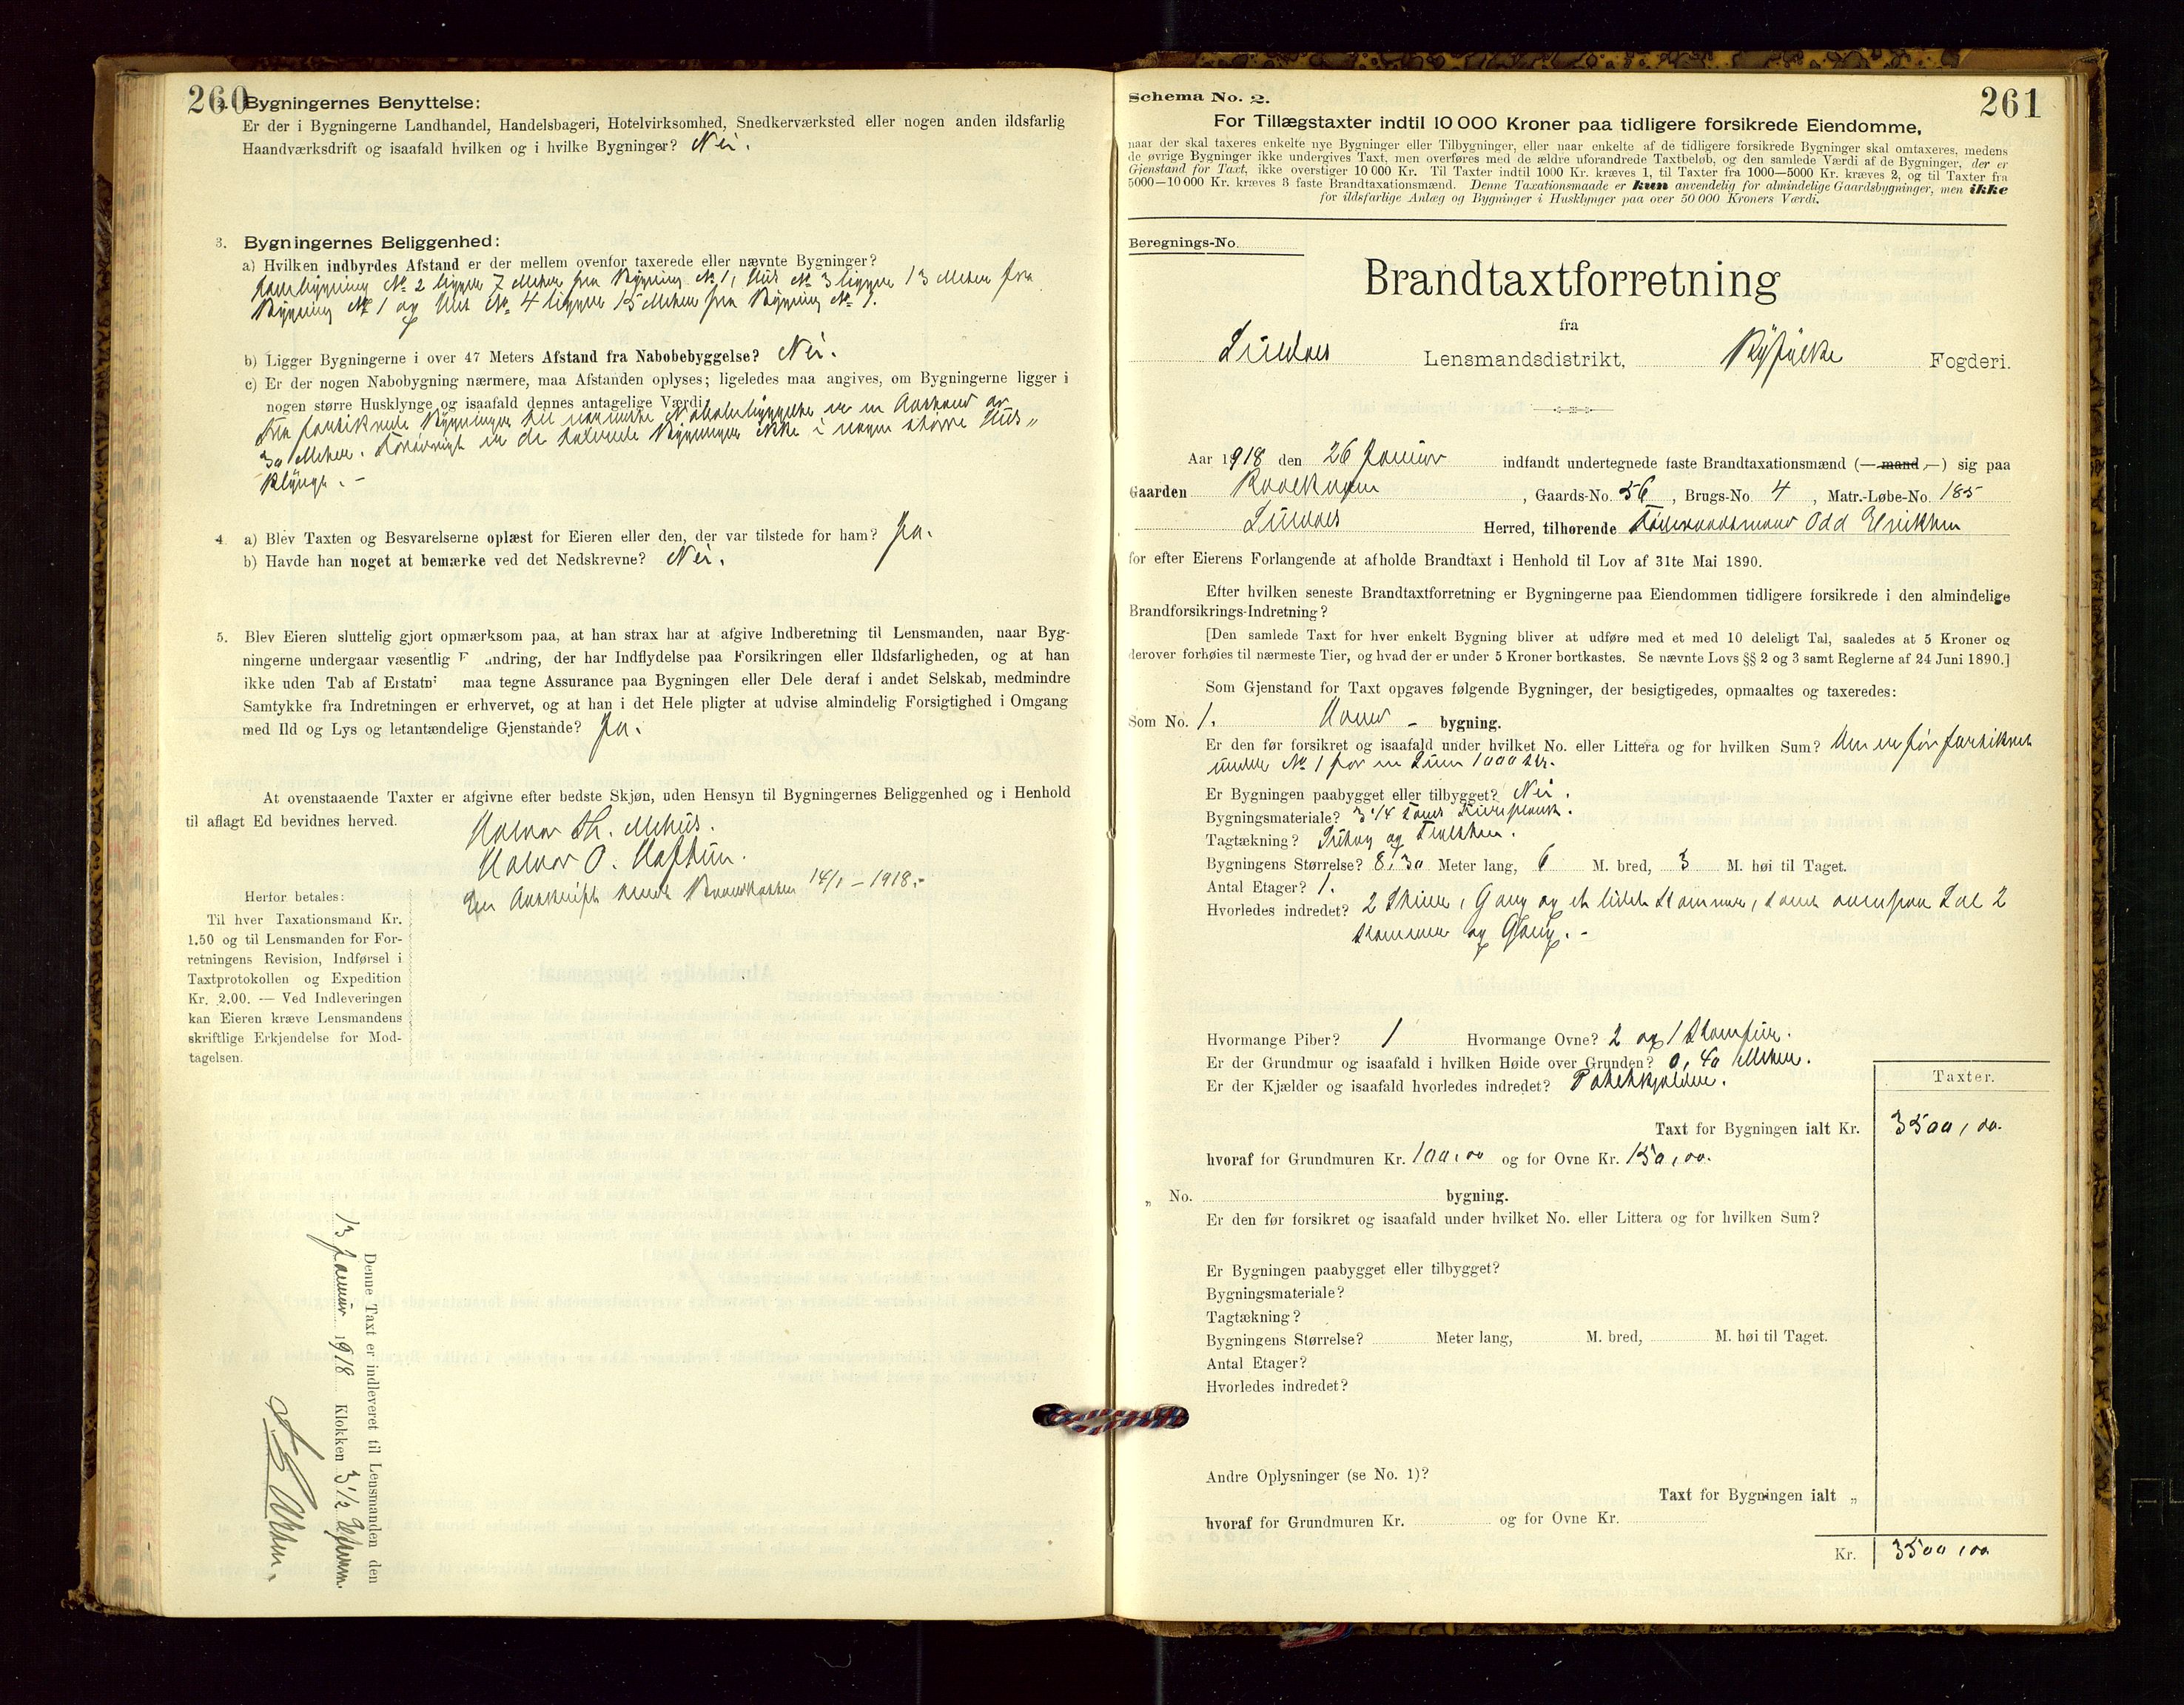 260
2. Bygningernes Benyttelse:
Er der i Bygningerne Landhandel, Handelsbageri, Hotelvirksomhed, Snedkerværksted eller nogen anden ildsfarlig
Haandværksdrift og isaafald hvilken og i hvilke Bygninger? Nei.
3. Bygningernes Beliggenhed:
a) Hvilken indbyrdes Afstand er der mellem ovenfor taxerede eller nævnte Bygninger?
Bygning No 2 ligger 7 Meter fra Bygning No 1, Hus No 3 ligger 13 Meter fra
Bygning No 1 og Hus No 4 ligger 15 Meter fra Bygning No 1.
b) Ligger Bygningerne i over 47 Meters Afstand fra Nabobebyggelse? Nei.
c) Er der nogen Nabobygning nærmere, maa Afstanden oplyses; ligeledes maa angives, om Bygningerne ligger i
nogen større Husklynge og isaafald dennes antagelige Værdi
Fra forsikrede Bygninger til nærmeste Nabobebyggelse er en Afstand av
30 Meter. Forøvrigt er de takserte Bygninger ikke i nogen større Hus-
klynge. -
4. a) Blev Taxten og Besvarelserne oplæst for Eieren eller den, der var tilstede for ham? Ja.
b) Havde han noget at bemærke ved det Nedskrevne? Nei.
5. Blev Eieren sluttelig gjort opmærksom paa, at han strax har at afgive Indberetning til Lensmanden, naar Byg-
ningerne undergaar væsentlig F andring, der har Indflydelse paa Forsikringen eller Ildsfarligheden, og at han
ikke uden Tab af Erstatni maa tegne Assurance paa Bygningen eller Dele deraf i andet Selskab, medmindre
Samtykke fra Indretningen er erhvervet, og at han i det Hele pligter at udvise almindelig Forsigtighed i Omgang
med Ild og Lys og letantændelige Gjenstande? Ja.
At ovenstaaende Taxter er afgivne efter bedste Skjøn, uden Hensyn til Bygningernes Beliggenhed og i Henhold
til aflagt Ed bevidnes herved.
Halvor Th. Mehus.
Halvor O. Haftun.
Avskrift sendt Brandkassen 14/1 - 1918.-
Herfor betales:
Til hver Taxationsmand Kr.
1.50 og til Lensmanden for For-
retningens Revision, Indførsel i
Taxtprotokollen og Expedition
Kr. 2.00. — Ved Indleveringen
kan Eieren kræve Lensmandens
skriftlige Erkjendelse for Mod-
tagelsen.
Denne Taxt er indleveret til Lensmanden den
13 Januar 1918 Klokken 3 1/2 Efterm.
261
Schema No. 2.
For Tillægstaxter indtil 10 000 Kroner paa tidligere forsikrede Eiendomme,
naar der skal taxeres enkelte nye Bygninger eller Tilbygninger, eller naar enkelte af de tidligere forsikrede Bygninger skal omtaxeres, medens
de øvrige Bygninger ikke undergives Taxt, men overføres med de ældre uforandrede Taxtbeløb, og den samlede Værdi af de Bygninger, der er
Gjenstand for Taxt, ikke overstiger 10 000 Kr. Til Taxter indtil 1000 Kr. kræves 1, til Taxter fra 1000—5000 Kr. kræves 2, og til Taxter fra
5000—10 000 Kr. kræves 3 faste Brandtaxationsmænd. Denne Taxationsmaade er kun anvendelig for almindelige Gaardsbygninger, men ikke
for ildsfarlige Anlæg og Bygninger i Husklynger paa over 50 000 Kroners Værdi.
Beregnings-No.
Brandtaxtforretning
fra
Suldal Lensmandsdistrikt, Ryfylke Fogderi.
Aar 1918 den 26 Januar indfandt undertegnede faste Brandtaxationsmænd (— mand —) sig paa
Gaarden , Gaards-No. 56, Brugs-No. 4, Matr.-Løbe-No. 185
Suldal Herred, tilhørende Odd Eriksen
for efter Eierens Forlangende at afholde Brandtaxt i Henhold til Lov af 31te Mai 1890.
Efter hvilken seneste Brandtaxtforretning er Bygningerne paa Eiendommen tidligere forsikrede i den almindelige
Brandforsikrings-Indretning?
[Den samlede Taxt for hver enkelt Bygning bliver at udføre med et med 10 deleligt Tal, saaledes at 5 Kroner og
derover forhøies til nærmeste Tier, og hvad der er under 5 Kroner bortkastes. Se nævnte Lovs §§ 2 og 3 samt Reglerne af 24 Juni 1890.]
Som Gjenstand for Taxt opgaves følgende Bygninger, der besigtigedes, opmaaltes og taxeredes:
Som No. 1. Hoved - bygning.
Er den før forsikret og isaafald under hvilket No. eller Littera og for hvilken Sum? Den er før forsikret
under No 1 for en Sum 1000 Kr.
Er Bygningen paabygget eller tilbygget? Nei.
Bygningsmateriale? 3 1/4 Toms Furuplank.
Tagtækning? Suhog og Taksten.
Bygningens Størrelse? 8,30 Meter lang, 6 M. bred, 3 M. høi til Taget.
Antal Etager? 1.
Hvorledes indredet? 2 Stuer, Gang og et lidet Kammer, samt ovenpaa Sal 2
Kammer og Gang. -
Hvormange Piber? 1 Hvormange Ovne? 2 og 1 Komfur.
Er der Grundmur og isaafald i hvilken Høide over Grunden? 0,40 Meter.
Er der Kjælder og isaafald hvorledes indredet? Potetkjelder.
Taxter.
Taxt for Bygningen ialt Kr. 3500,00.
hvoraf for Grundmuren Kr. 100,00 og for Ovne Kr. 150,00.
„ No. bygning.
Er den før forsikret og isaafald under hvilket No. eller Littera og for hvilken Sum?
Er Bygningen paabygget eller tilbygget?
Bygningsmateriale?
Tagtækning?
Bygningens Størrelse? Meter lang, M. bred, M. høi til Taget.
Antal Etager?
Hvorledes indredet?
Andre Oplysninger (se No. 1)?
Taxt for Bygningen ialt „
hvoraf for Grundmuren Kr. og for Ovne Kr.
Kr. 3500,00